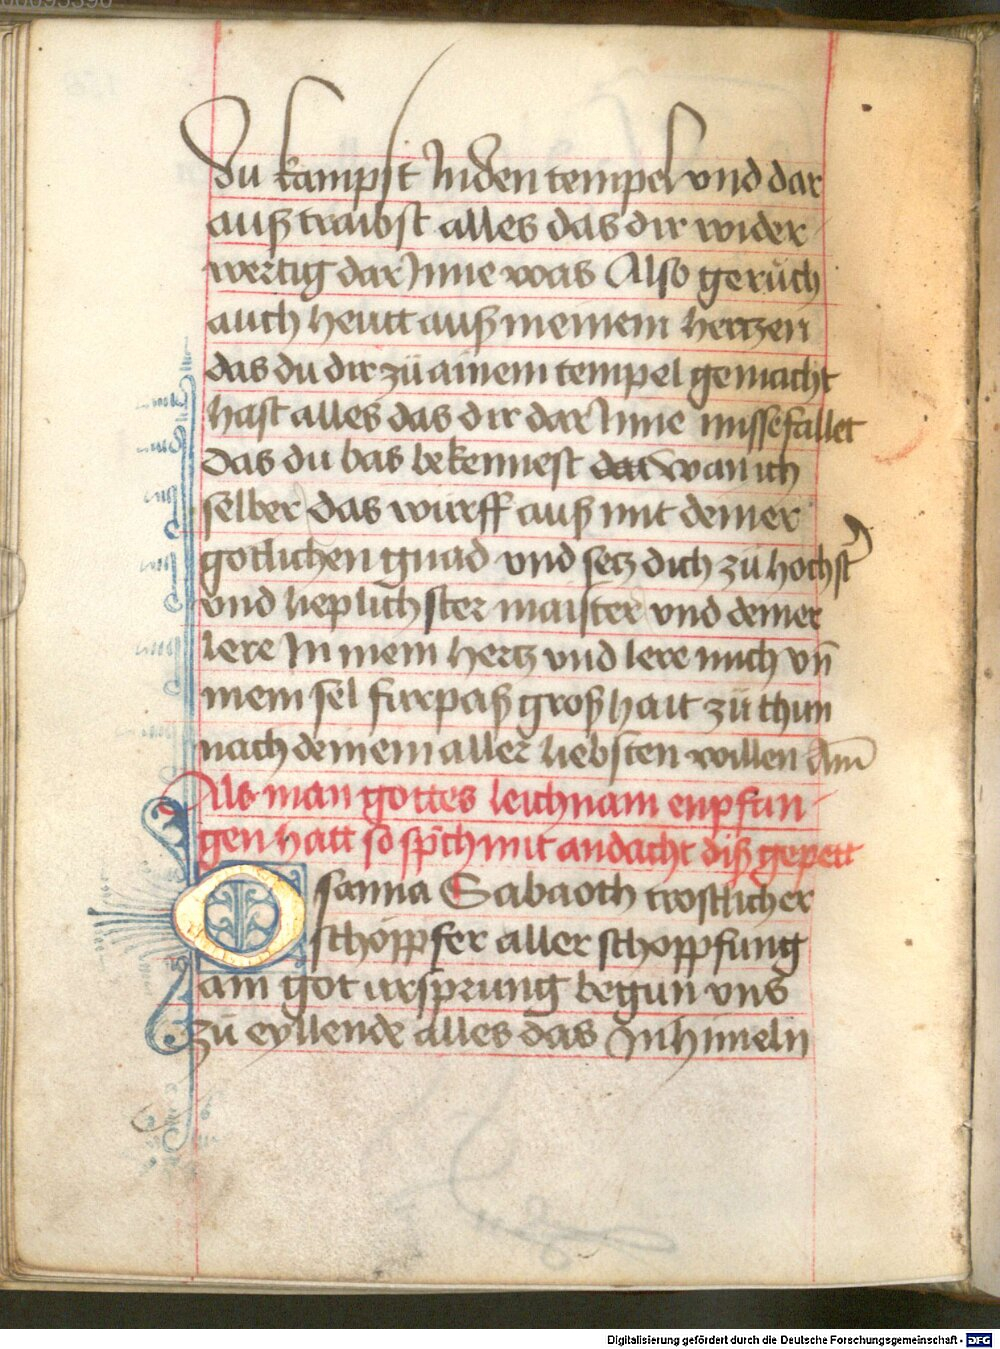 du kampst Inden tempel vnd dar
auß traibst alles das dir wider
wertig dar Inne was Also geruch
auch heutt auß meinem hertzen
das du dir zü ainem tempel gemacht
hast alles das dir dar Inne missefallet
das du bas bekennest wan ich
selber das wurff auß mit deiner
gotlichen gnad vnd setz dich zü hochst
vnd lieplichster maister vnd deiner
lere In mein hertz vnd lere mich vn̄
mein sel furpaß großhait zü thun
nach deinem aller liebsten willen Am̄
Als man gottes leichnam enpfan
gen hatt so spr̄ch mit andacht diß gepett
Osanna Sabaoth trostlicher
schöppfer aller schoppfung
ain got ursprung begun vns
zü eyllende alles das In himeln
Digitalisierung gefördert durch die Deutsche Forschungsgemeinschaft - DFG